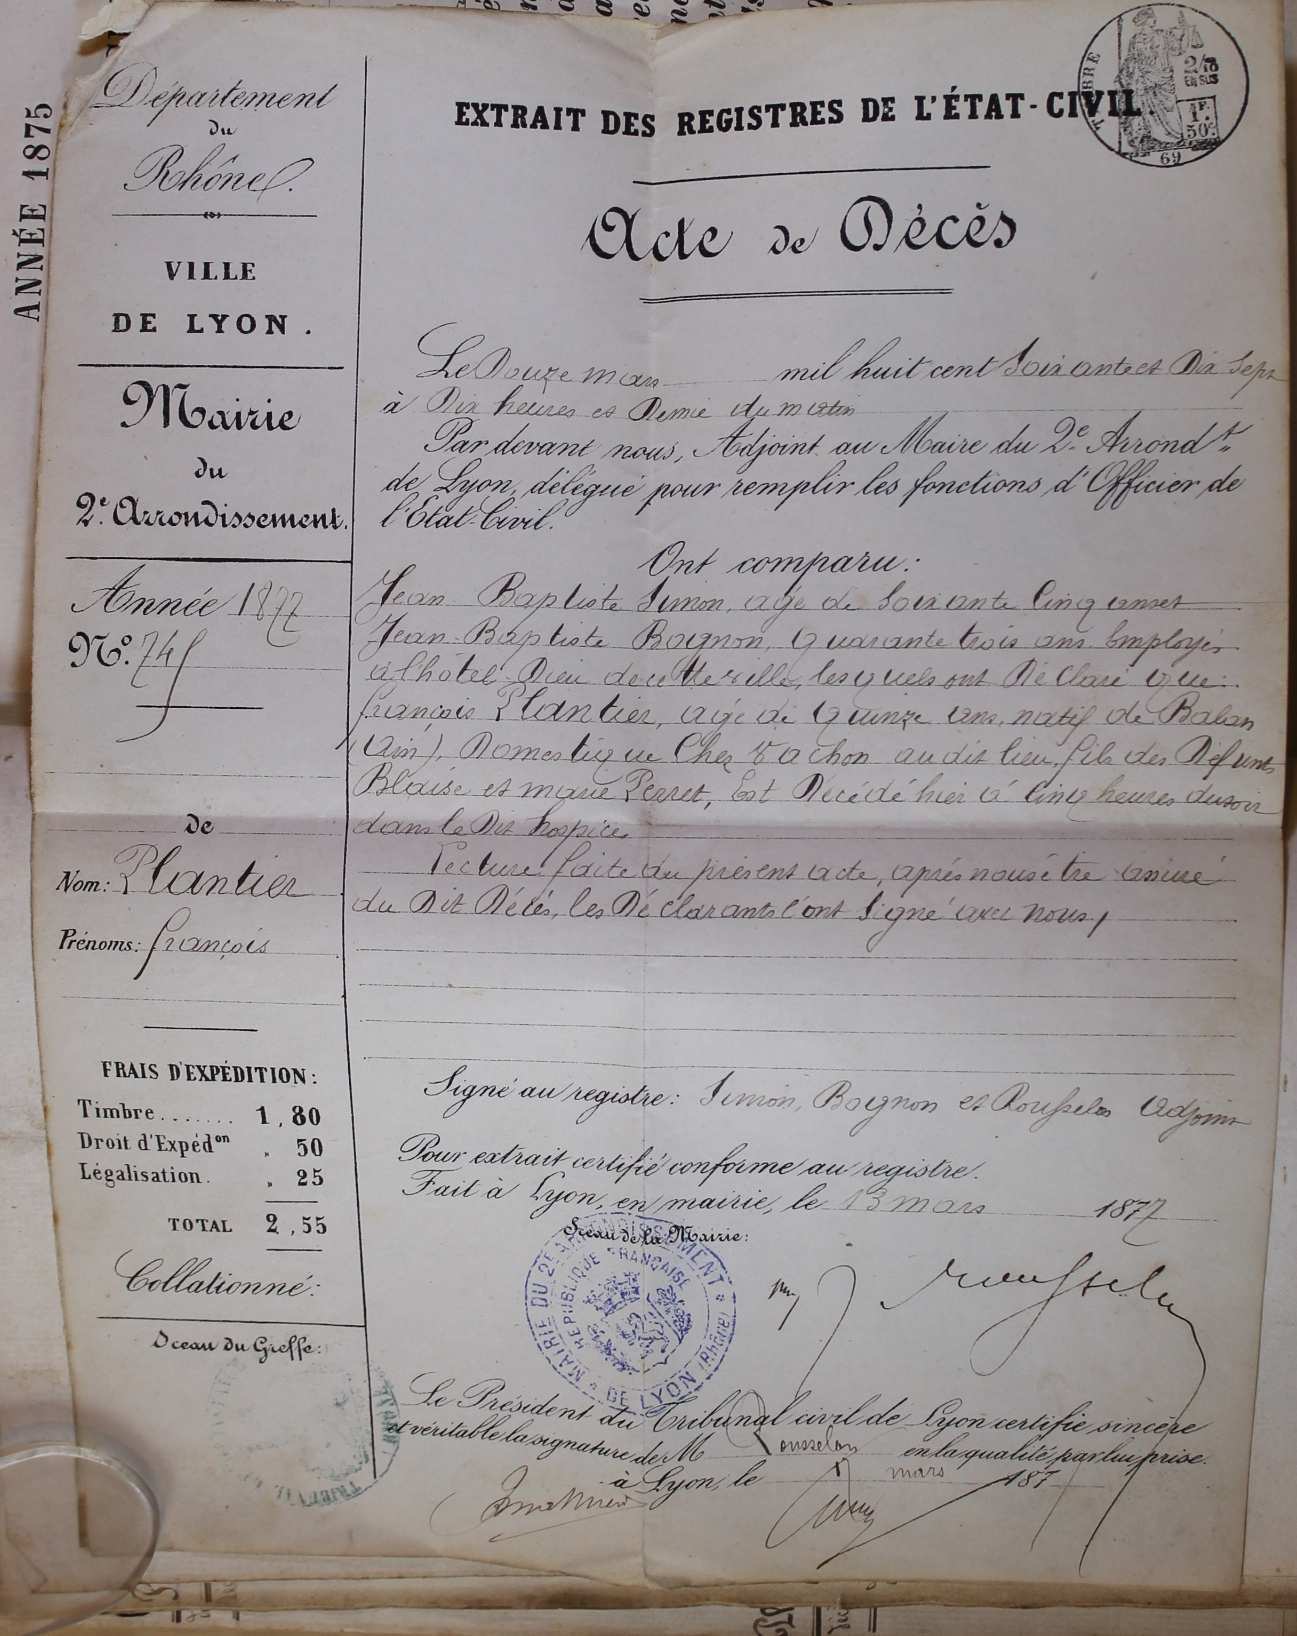 ANNÉE 1875
Département
du
Rhône.
VILLE
DE LYON.
Mairie
du
2e Arrondissement.
Année 1877
No. 745
de
Nom: Plantier
Prénoms: françois
FRAIS D'EXPÉDITION:
Timbre....... 1,80
Droit d'Expédon " 50
Légalisation. " 25
TOTAL 2,55
Collationné:
Sceau du Greffe:
TIMBRE
2/10
EN SUS
1F.
50c.
69
EXTRAIT DES REGISTRES DE L'ÉTAT-CIVIL
Acte de Décès
Le Douze mars mil huit cent Soixante et Dix Sept
à Dix heures et Demie du matin
Par devant nous, Adjoint au Maire du 2e Arrondt
de Lyon, délégué pour remplir les fonctions d'Officier de
l'Etat-Civil.
Ont comparu:
Jean Baptiste Simon, agé de Soixante Cinq ans et
Jean-Baptiste Bagnon, Quarante trois ans Employés
à l'hôtel-Dieu de cette ville, lesquels ont Déclaré que
françois Plantier, agé de Quinze ans, natif de Balan
(Ain), Domestique Chez Vachon au dit lieu, fils des Défunts
Blaise et marie Perret, Est Décédé hier à Cinq heures du soir
dans le Dit hospice
Lecture faite du présent acte, après nous être assuré
du Dit Décés, les Déclarants l'ont Signé avec nous,
Signé au registre: Simon, Bagnon et Rousselon Adjoint
Pour extrait certifié conforme au registre.
Fait à Lyon, en mairie, le 13 mars 1877
Sceau de la Mairie:
MAIRIE DU 2E ARRONDISSEMENT * DE LYON (RHÔNE) *
RÉPUBLIQUE FRANÇAISE
Rousselon
Le Président du Tribunal civil de Lyon certifie sincère
et véritable la signature de M Rousselon en la qualité par lui prise.
à Lyon, le mars 187